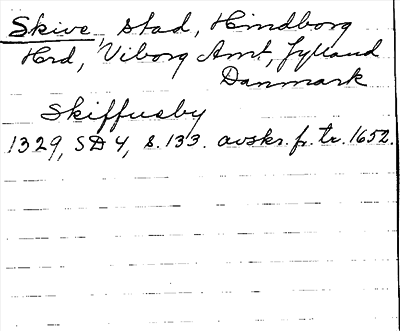 Skive, stad, Hindborg
Hrd, Viborg Amt, Jylland
Danmark
Skiffusby
1329, SD 4, s. 133. avskr. fr. tr. 1652.